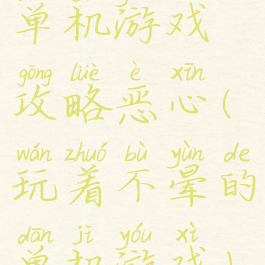 单机游戏
gōng lüè è xīn
攻略恶心(
wán zhuó bù yùn de
玩着不晕的
dān jī yóu xì
单机游戏)